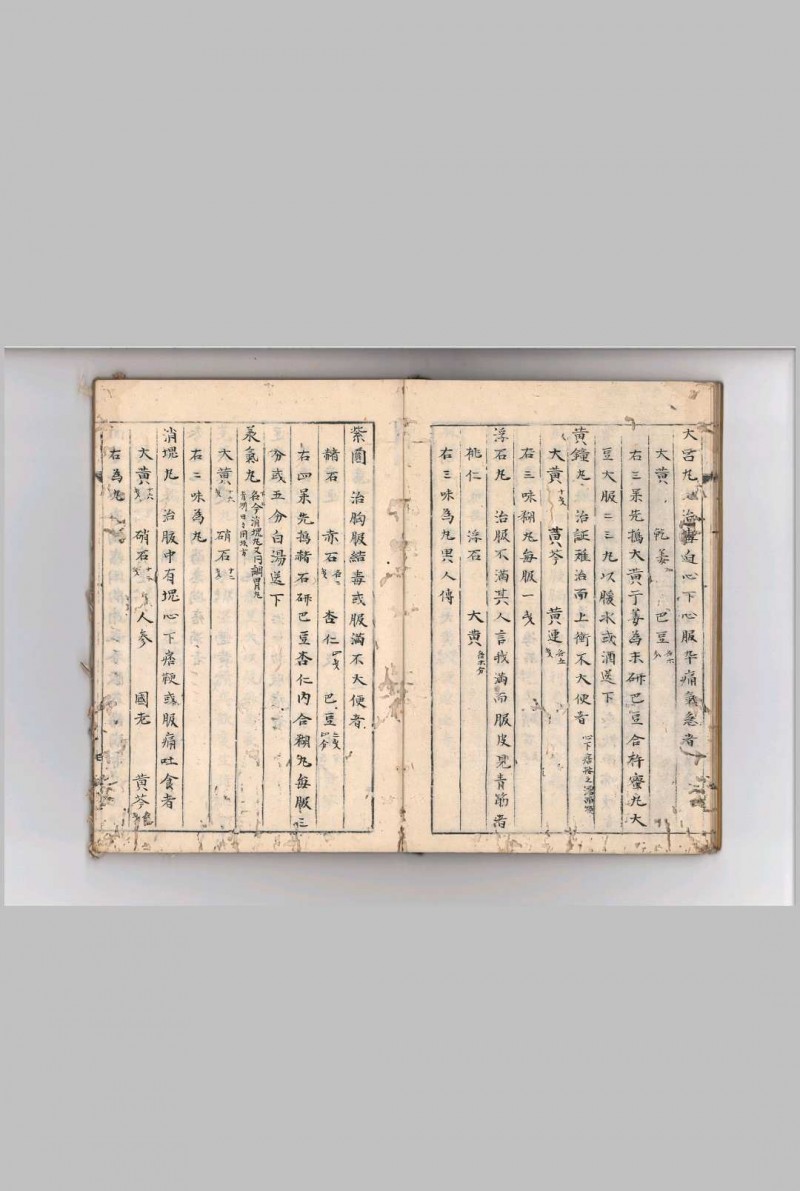 大呂丸 治 心下心腹卒痛氣急者
大黄 乾姜 巴豆
右三味先搗大黄于薑為末研巴豆合杵蜜丸大
豆大服二三丸以暖水或酒送下
黄鐘丸 治証難治而上衝不大便者 心下痞按之濡
大黄 黄芩 黄連
右三味糊丸每服一戔
浮石丸 治腹不滿其人言我滿而腹皮見青筋者
桃仁 浮石 大黄
右三味為丸異人傳
紫圓 治胸腹結毒或腹滿不大便者
赭石 赤石 杏仁 巴豆
右四味先搗赭石研巴豆杏仁内合糊丸每服三
分或五分白湯送下
承氣丸 名今消塊丸又 調胃丸
大黄 硝石
右二味為丸
消塊丸 治腹中有塊心下痞鞕或腹痛吐食者
大黄 硝石 人參 國老 黄芩
右為丸